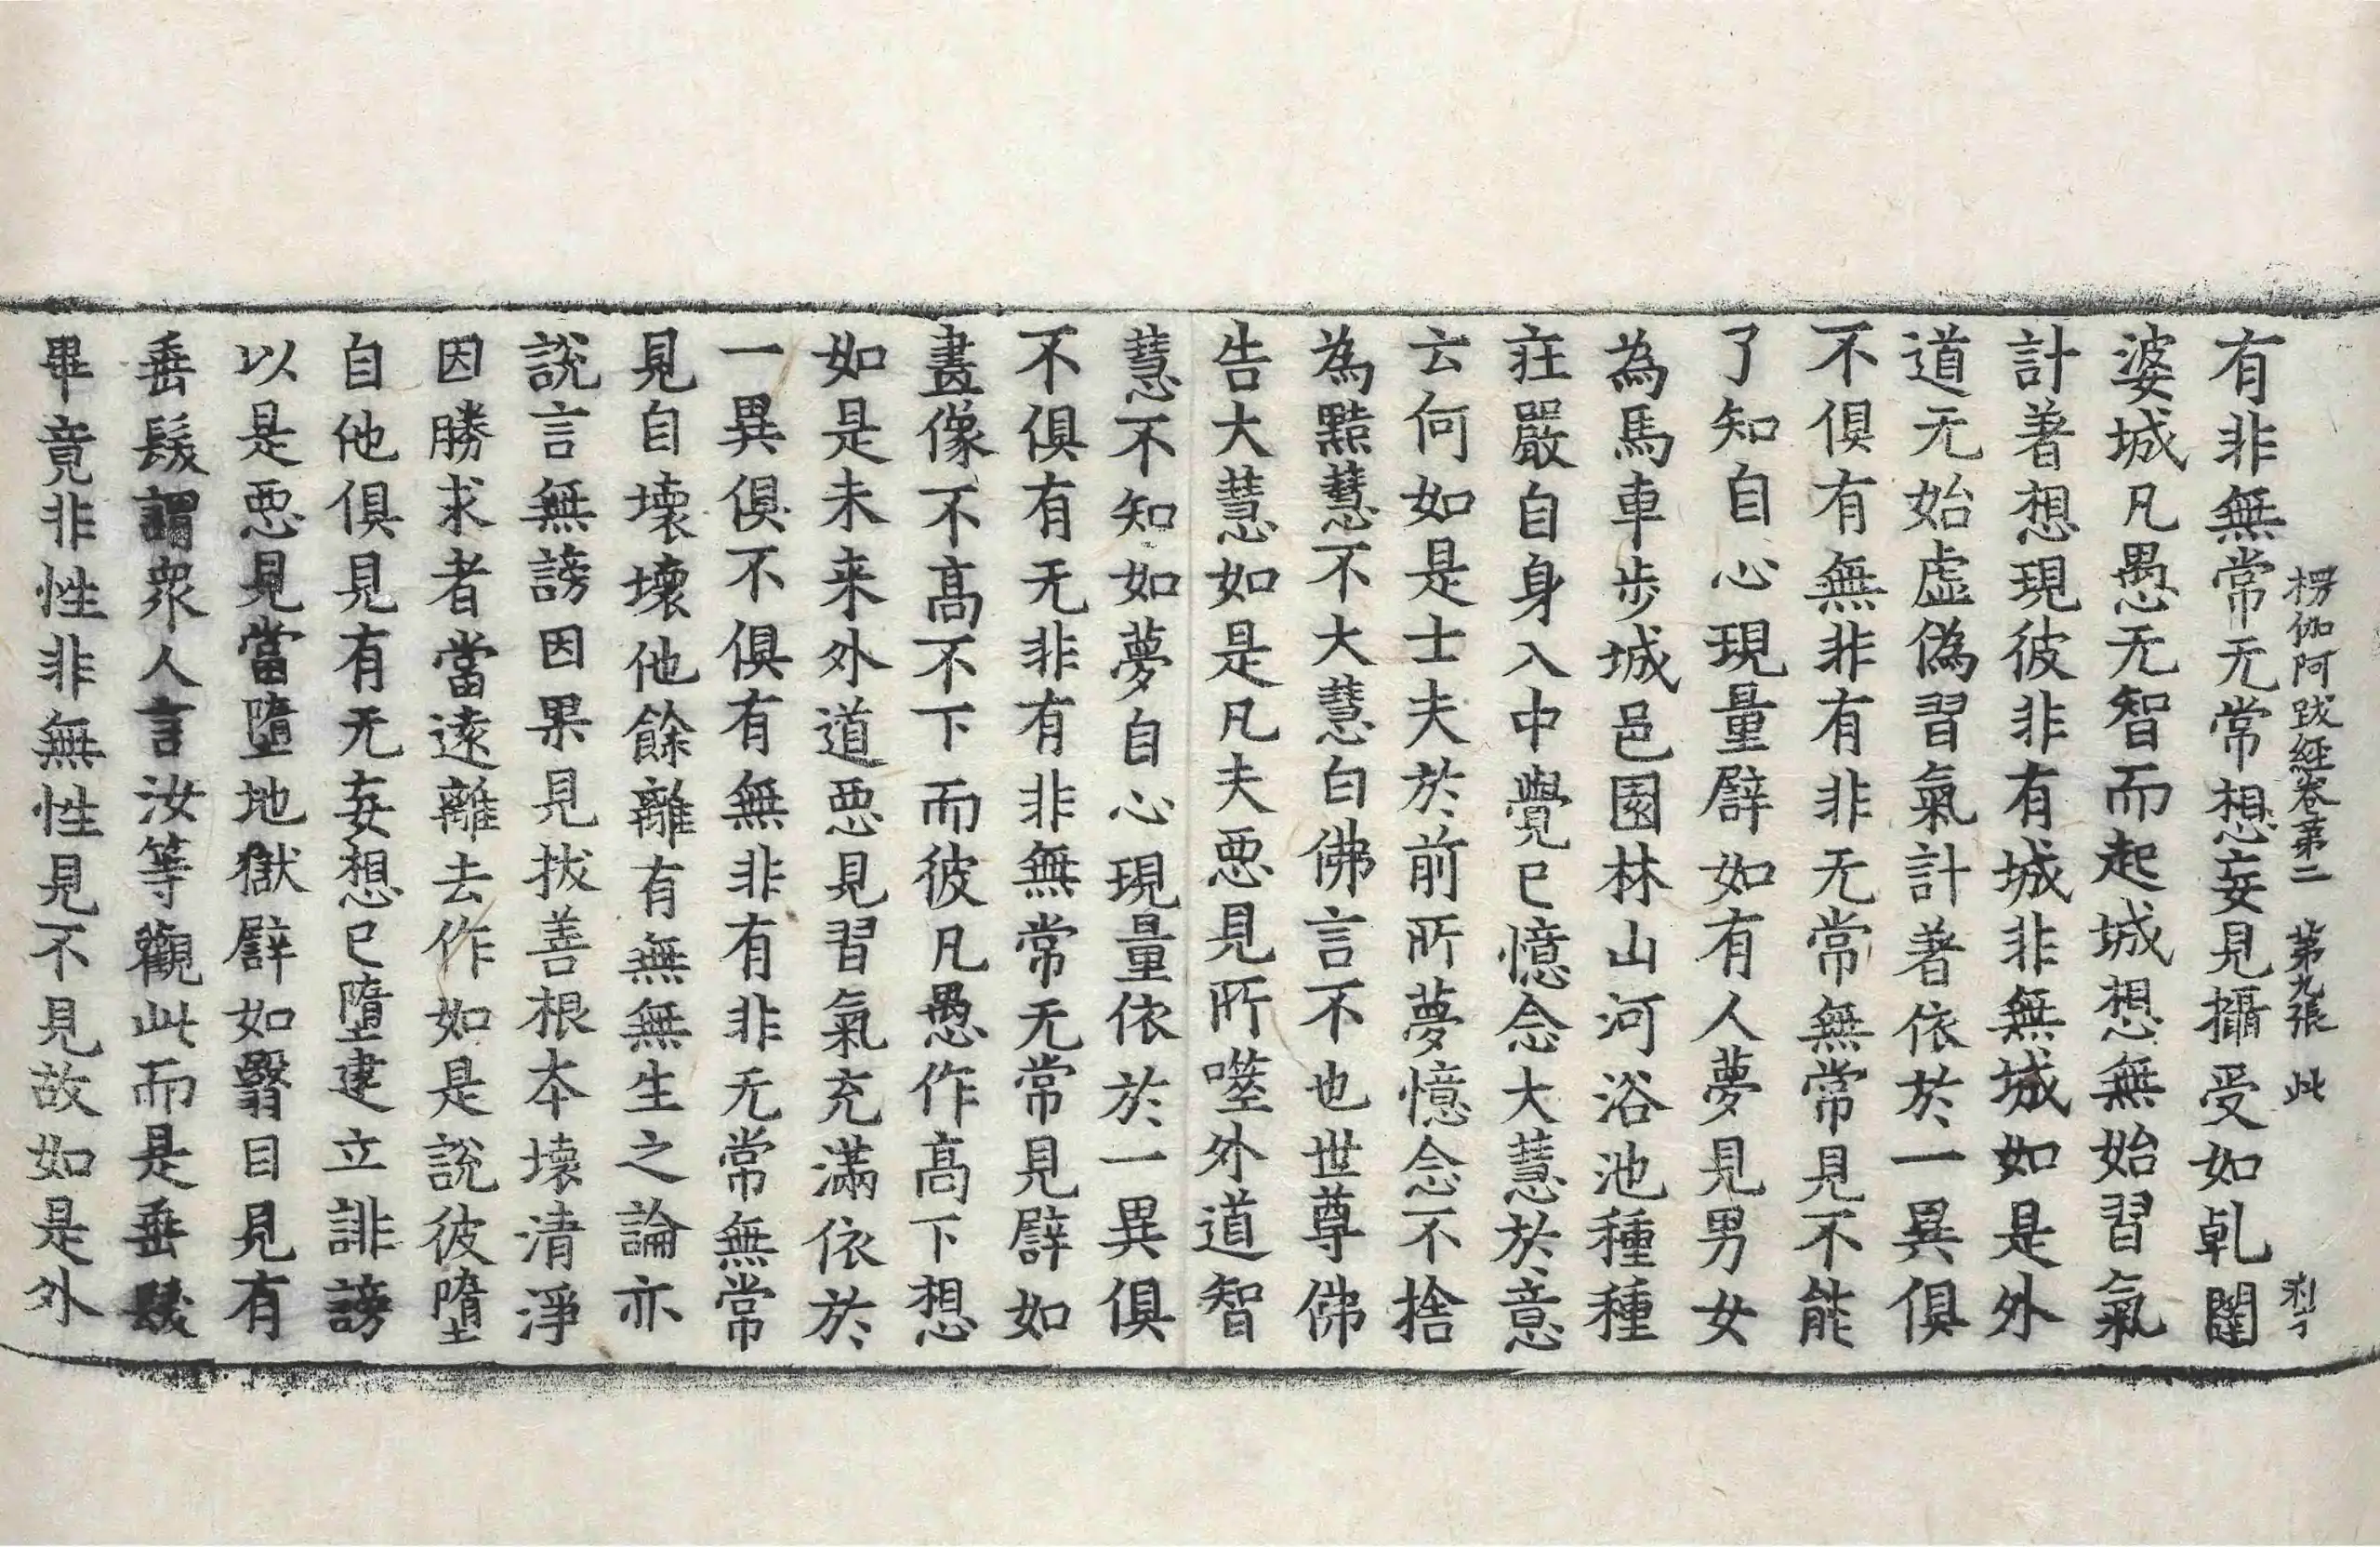 楞伽阿跋経卷苐二　苐九張　此
有非無常无常想妄見攝受如乹闥
婆城凡愚无智而起城想無始習氣
計著想現彼非有城非無城如是外
道无始虛偽習氣計著依於一異俱
不俱有無非有非无常無常見不能
了知自心現量譬如有人夢見男女
為馬車步城邑園林山河浴池種種
莊嚴自身入中覺已憶念大慧於意
云何如是士夫於前所夢憶念不捨
為黠慧不大慧白佛言不也世尊佛
告大慧如是凡夫惡見所噬外道智
慧不知如夢自心現量依於一異俱
不俱有无非有非無常无常見譬如
畫像不不高不下而彼凡愚作高下想
如是未来外道惡見習氣充滿依於
一異俱不俱有無非有非无常無常
見自壞壞他餘離有無無生之論亦
說言無謗因果見拔善根本壞清淨
因勝求者當遠離去作如是說彼墮
自他俱見有无妄想已墮建立誹謗
以是惡見當墮地獄譬如翳目見有
垂髮謂衆人言汝等觀此而是垂髮
畢竟非性非無性見不見故如是外